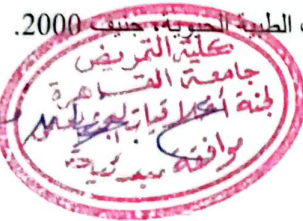 الطبية الحيوية، جنيف 2000.
كلية التمريض
جامعة القاهرة
لجنة أخلاقيات البحث العلمى
موافقة مبدئية